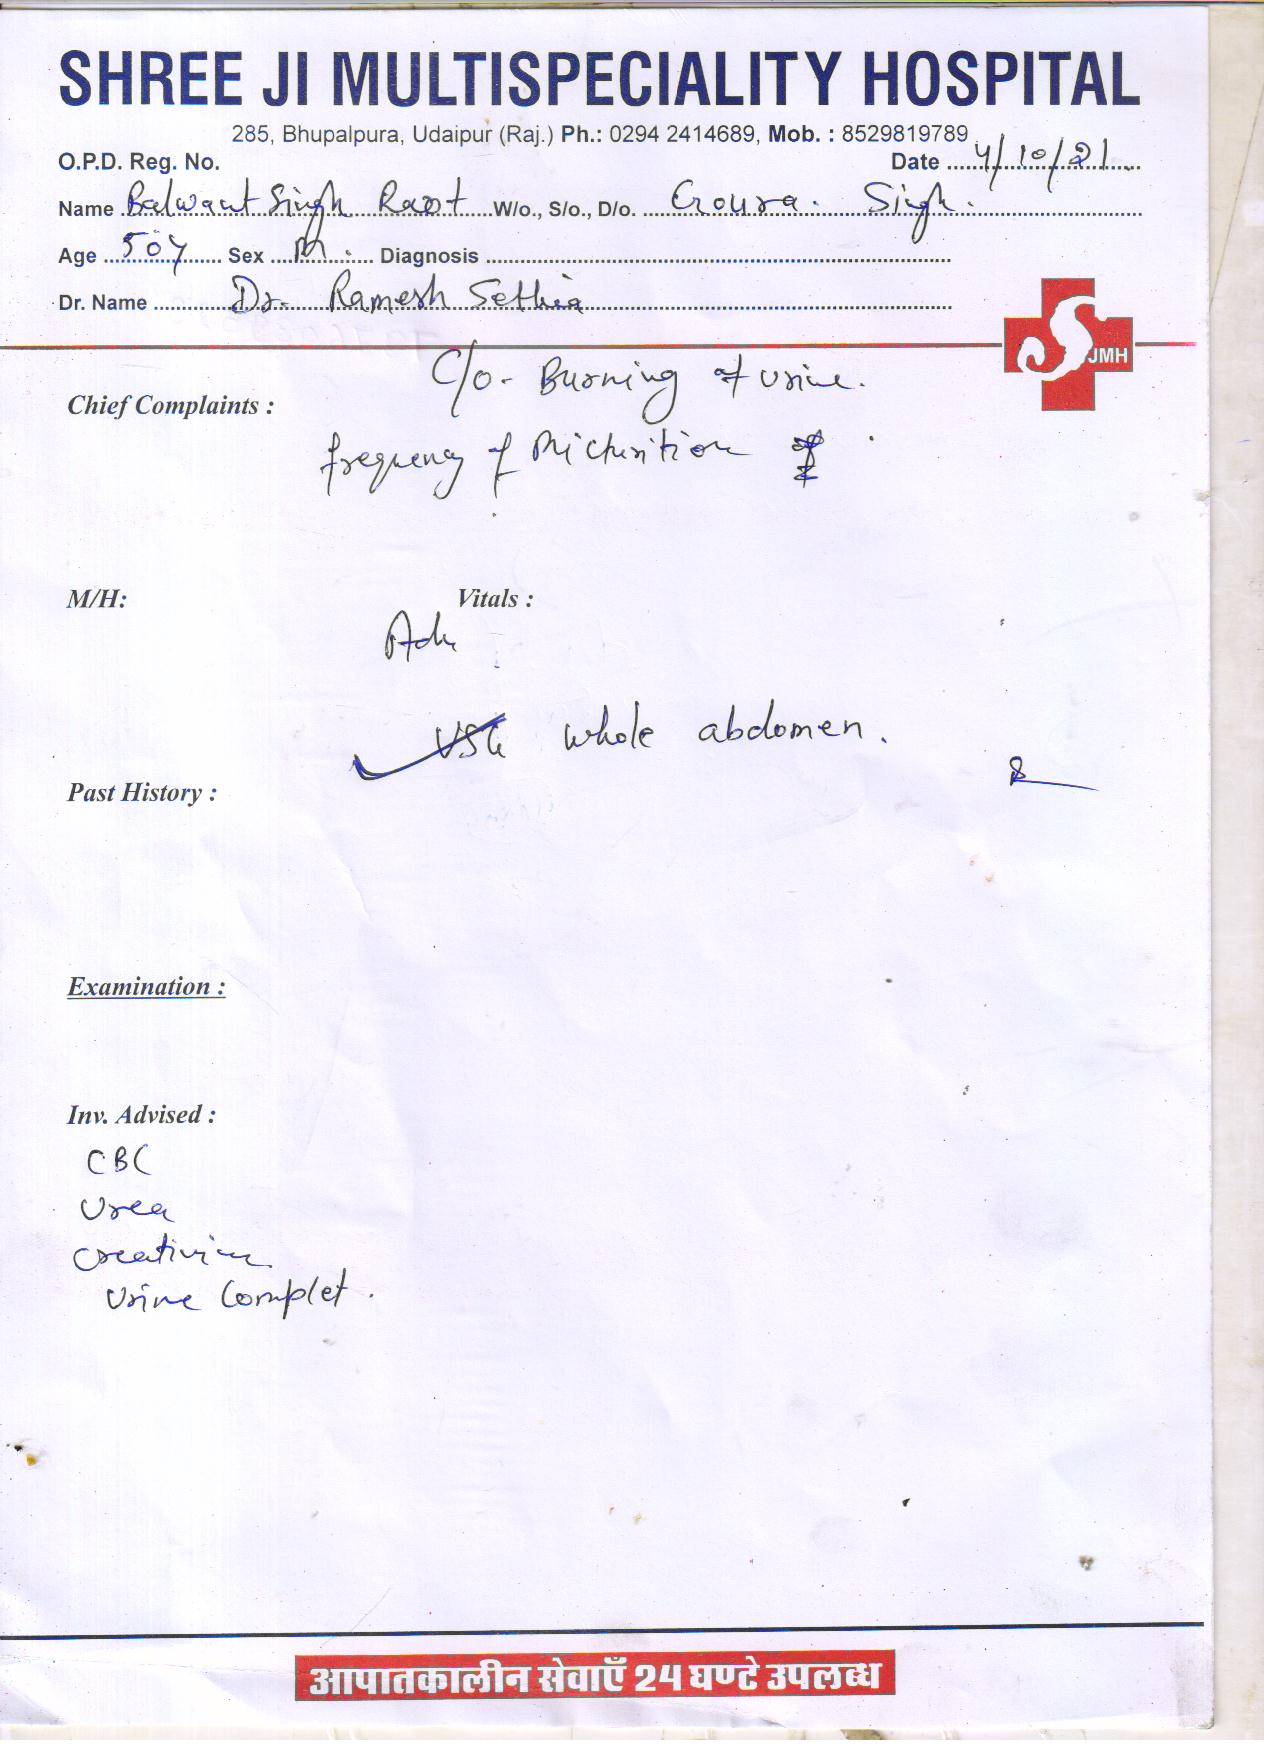 SHREE JI MULTISPECIALITY HOSPITAL
285, Bhupalpura, Udaipur (Raj.) Ph.: 0294 2414689, Mob. : 8529819789
O.P.D. Reg. No. Date 4/10/21
Name Balwant Singh Raot W/o., S/o., D/o. Groura. Singh.
Age 50y Sex M. Diagnosis
Dr. Name Dr. Ramesh Sethia
JMH
C/o - Burning of urine.
Chief Complaints :
frequency of Micturition
M/H: Vitals :
Adv
USG whole abdomen.
Past History :
Examination :
Inv. Advised :
CBC
Urea
Creatinine
Urine Complet.
आपातकालीन सेवाएँ 24 घण्टे उपलब्ध